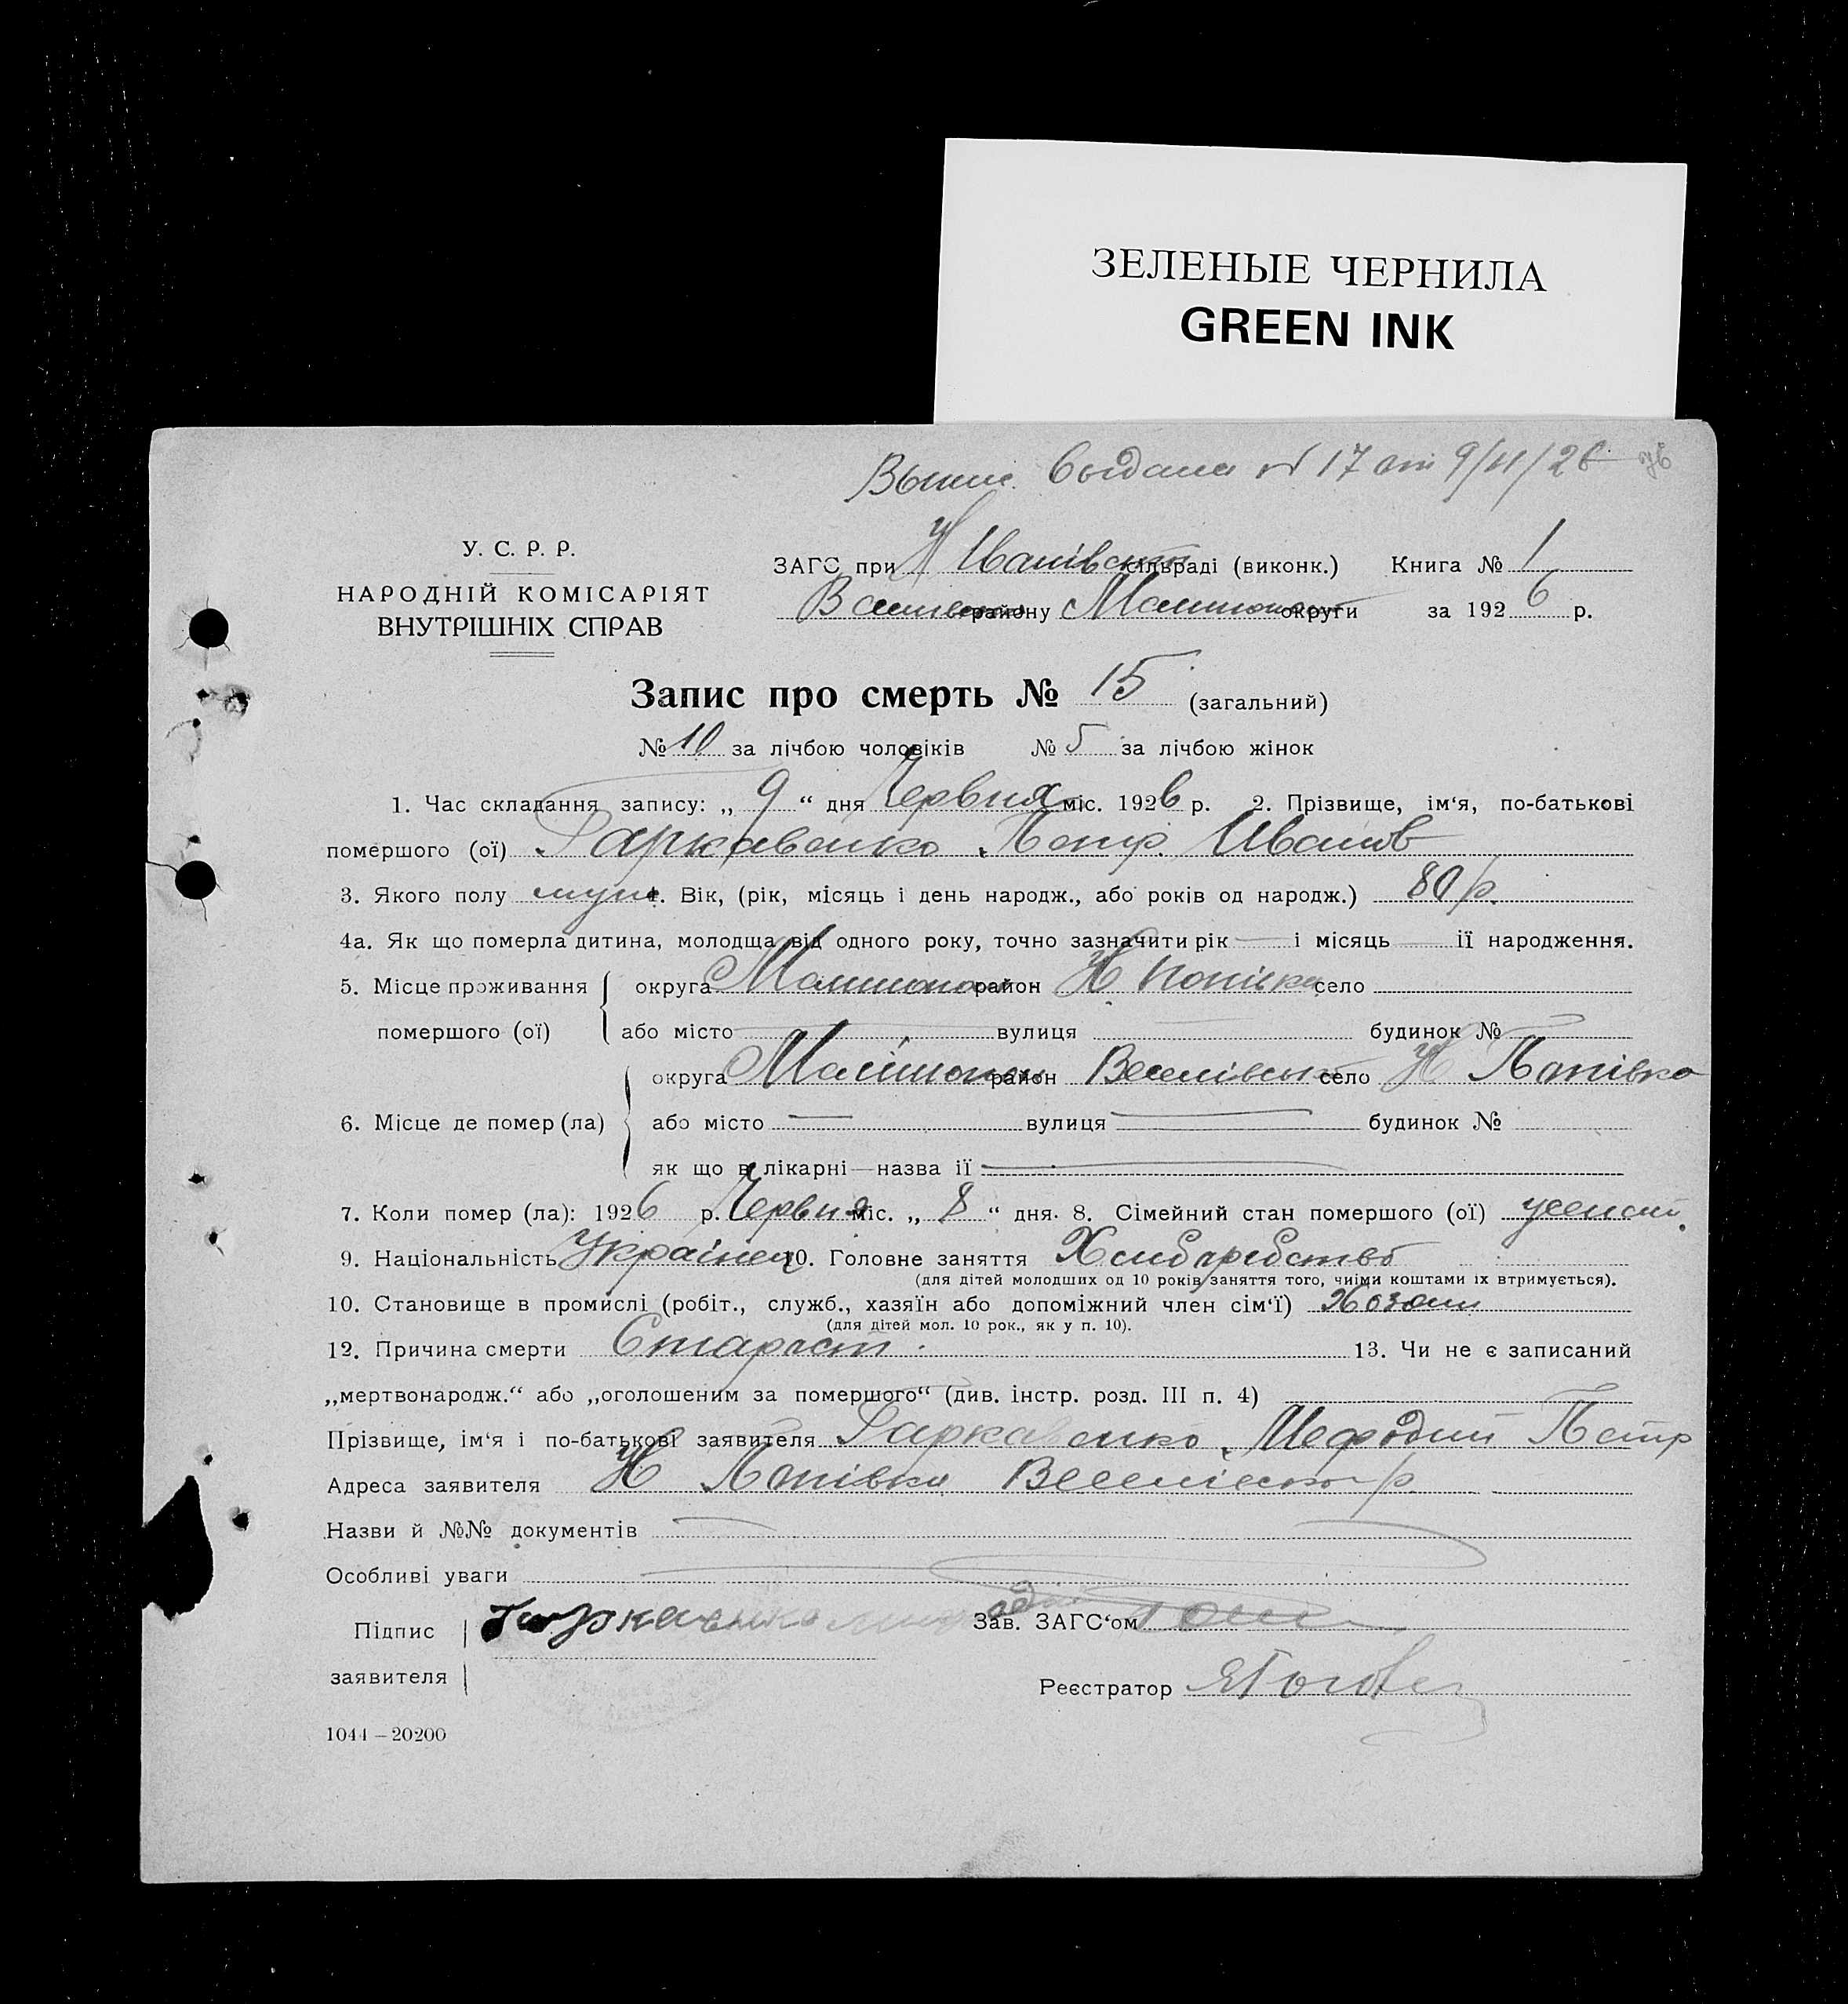 ЗЕЛЕНЫЕ ЧЕРНИЛА
GREEN INK
выдана № 17 от 9/VI/26
У. С. Р. Р.
НАРОДНІЙ КОМІСАРІЯТ
ВНУТРІШНІХ СПРАВ
ЗАГС при Н сільраді (виконк.) Книга № 1
району округи за 1926 р.
Запис про смерть № 15 (загальний)
№ 10 за лічбою чоловіків № 5 за лічбою жінок
1. Час складання запису: „ 9 “ дня Червня міс. 1926 р. 2. Прізвище, ім‘я, по-батькові
помершого (ої) Гаркавенко Петр Иванов
3. Якого полу муж. 4. Вік, (рік, місяць і день народж., або років од народж.) 80 р.
4а. Як що померла дитина, молодща від одного року, точно зазначити рік — і місяць — ії народження.
5. Місце проживання округа район Н Попівка село
помершого (ої) або місто вулиця будинок №
округа район Веселівськ село Н Попівка
6. Місце де помер (ла) або місто — вулиця — будинок №
як що в лікарні—назва ії —
7. Коли помер (ла): 1926 р. Червня міс. „ 8 “ дня. 8. Сімейний стан помершого (ої)
9. Національність Украінец 10. Головне заняття Хлибаробство
(для дітей молодших од 10 років заняття того, чиїми коштами їх втримується).
10. Становище в промислі (робіт., служб., хазяїн або допоміжний член сім‘ї) Хозаин
(для дітей мол. 10 рок., як у п. 10).
12. Причина смерти Старост 13. Чи не є записаний
„мертвонародж.“ або „оголошеним за помершого“ (див. інстр. розд. III п. 4)
Прізвище, ім‘я і по-батькові заявителя Гаркавенко Мефодий Петр
Адреса заявителя Н Попівка р.
Назви й №№ документів
Особливі уваги
Підпис Гаркавенко Зав. ЗАГС‘ом
заявителя
Реєстратор
1044 — 20200